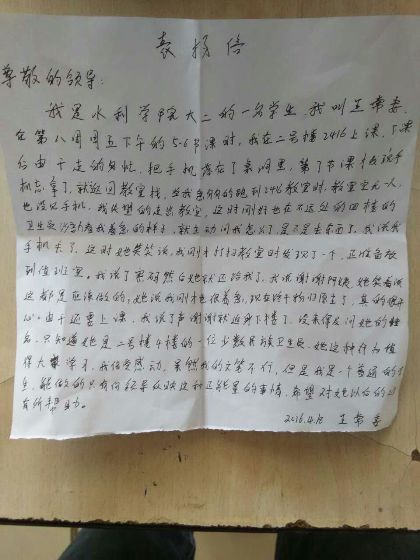 表扬信
尊敬的领导:
我是水利学院大二的一名学生,我叫王常委
在第八周周五下午的5.6节课时,我在二号楼2416上课,下课
后由于走的匆忙,把手机落在了桌洞里,第了节课
机忘拿了,就返回教室找,当我急匆匆的跑到2416教室时,教室空无一人,
也没见手机,我失望的走出教室,这时刚好也在不远处的四楼的
卫生员 看我着急的样子,就主动问我怎么了是不是丢东西了,我说我
手机丢了,这时她笑笑说,我刚才打扫教室时发现了一个,正准备放
到值班室。我说了密码然后她就还给我了,我说谢谢阿姨,她笑着说
这都是应该做的,她说我刚才也很着急,现在终于物归原主了,真的很开
心。由于还要上课,我说了声谢谢就返身下楼了,没来得及问她的姓
名,只知道她是二号楼4楼的一位少数民族卫生员。她这种行为值
得大家学习,我倍受感动,虽然我的文笔不行,但是我是一个普通的学
生,能做的只有向领导反映这种正能量的事情,希望对她以后的
有所帮助。
2016.4.18 王常委